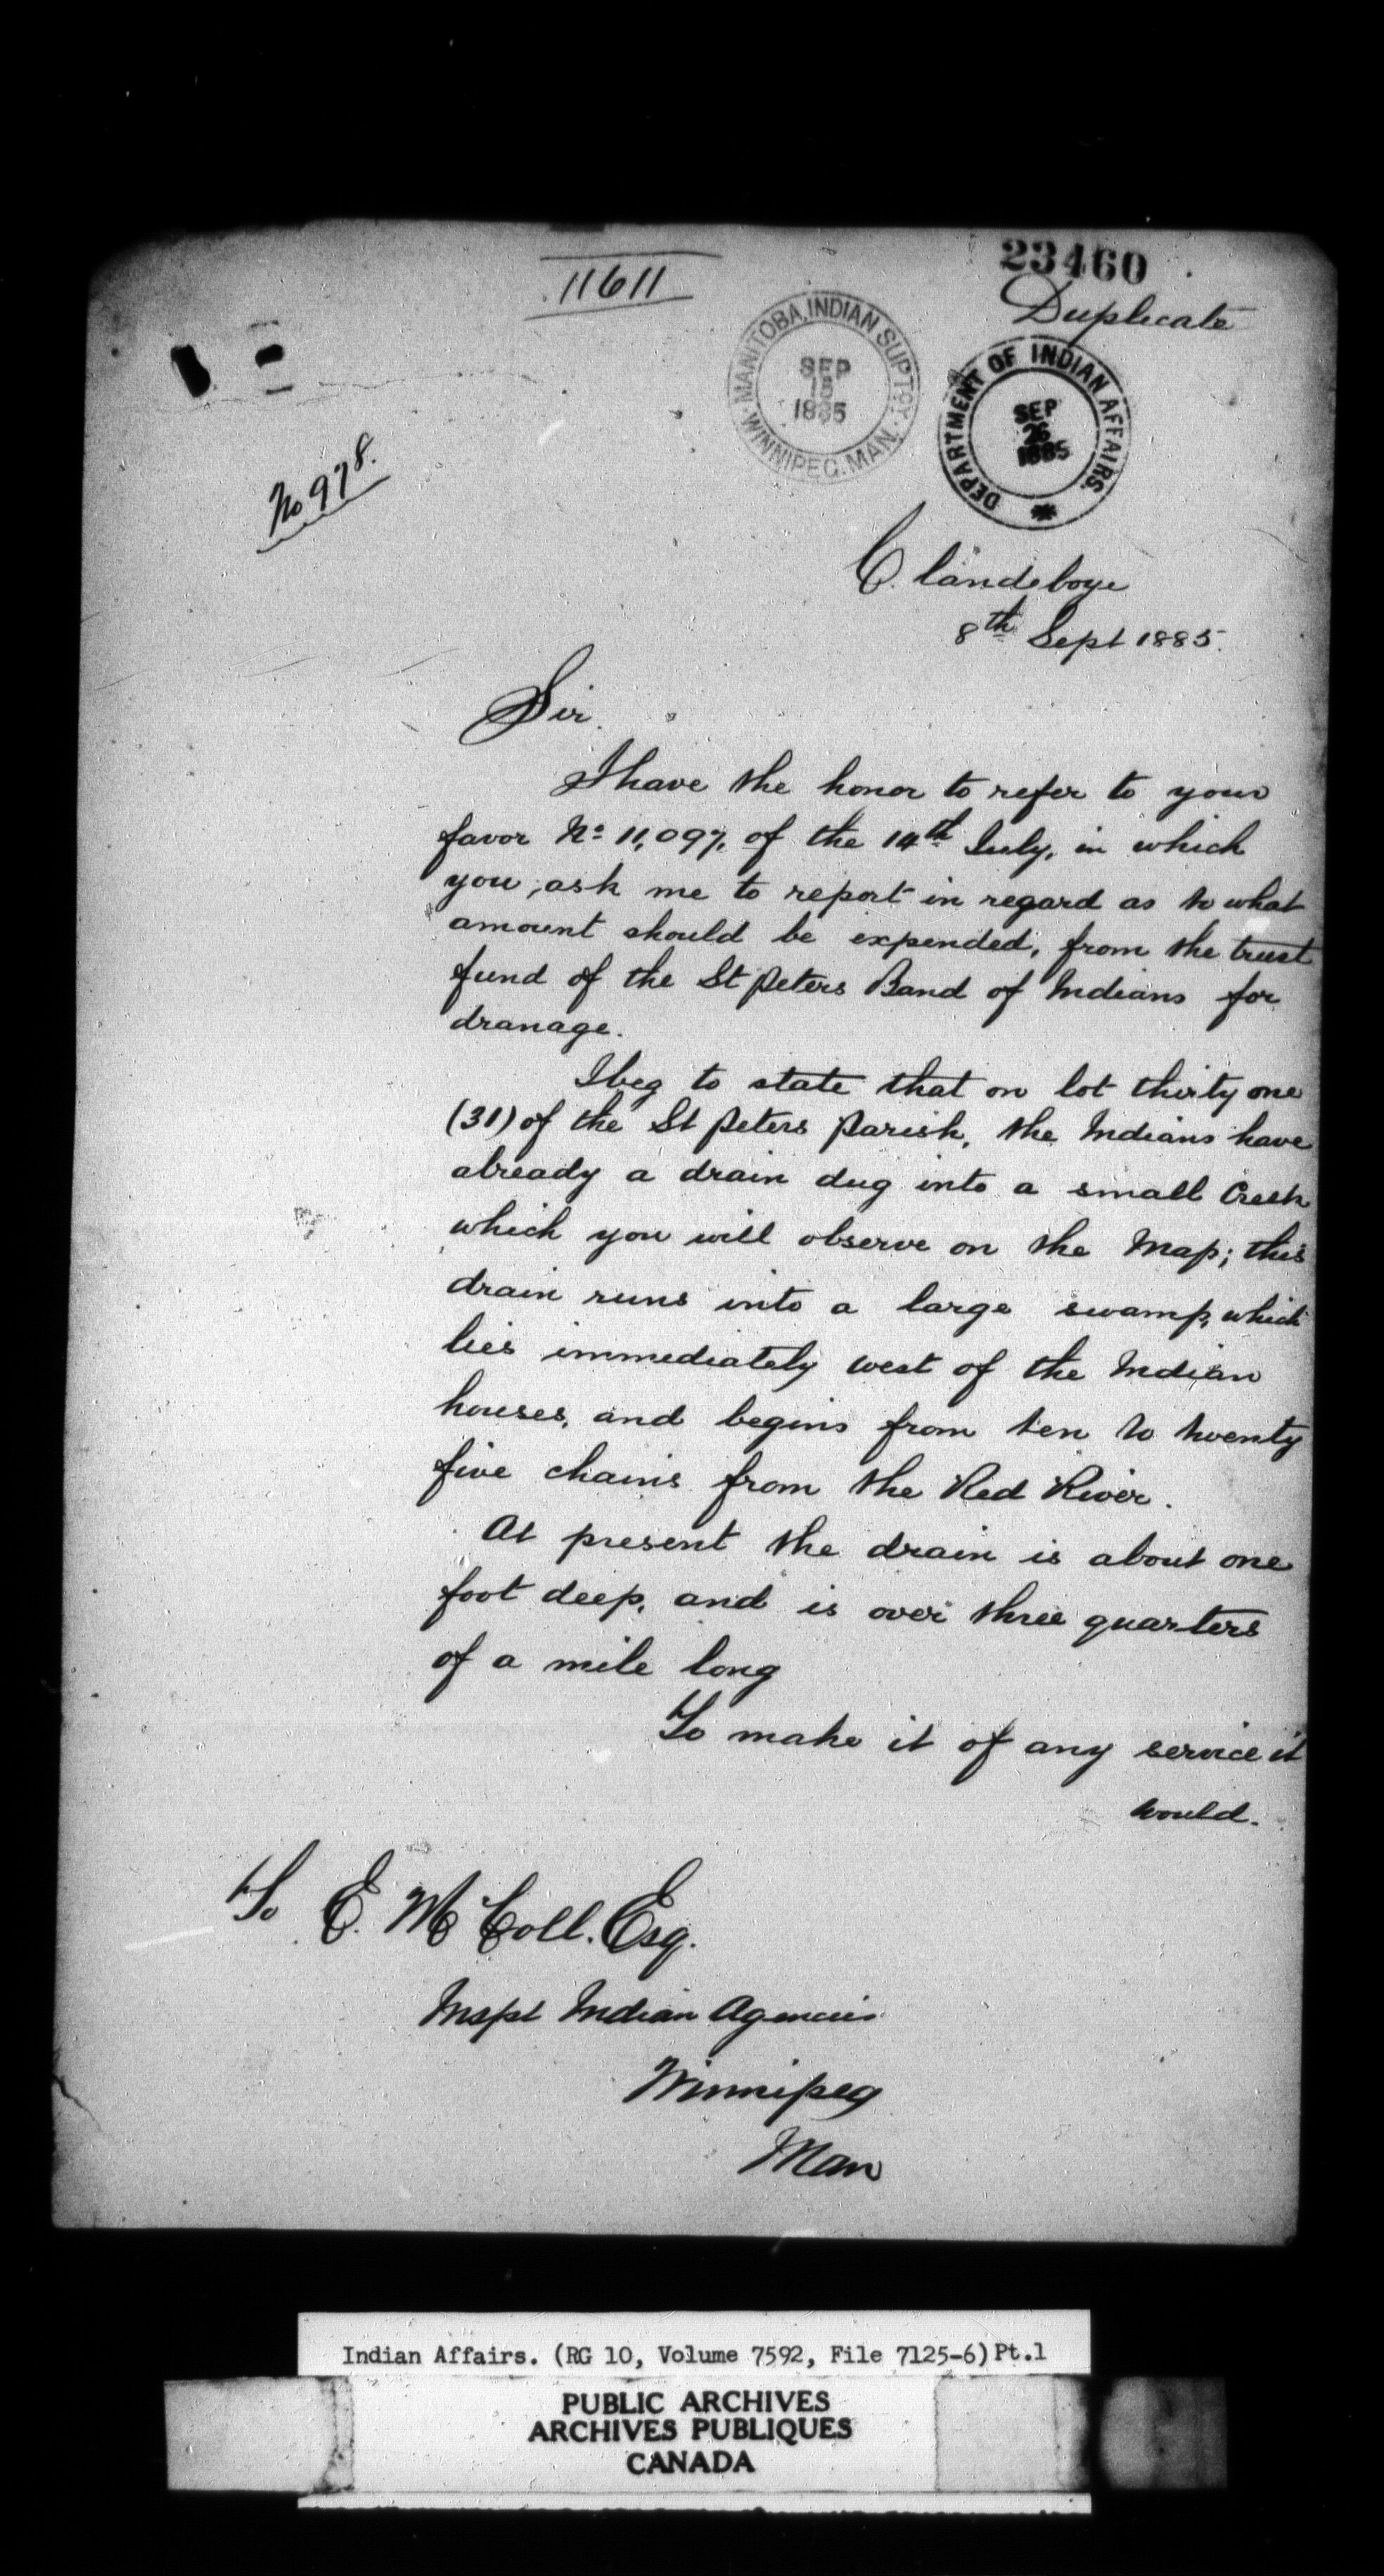 23460
11611
Duplicate
MANITOBA, INDIAN SUPTCY. WINNIPEG. MAN.
SEP
15
1885
DEPARTMENT OF INDIAN AFFAIRS.
SEP
26
1885
No 978.
Clandeboye
8th Sept 1885.
Sir.
I have the honor to refer to your
favor No 11,097, of the 14th July, in which
you, ask me to report in regard as to what
amount should be expended, from the trust
fund of the St Peters Band of Indians for
dranage.
I beg to state that on lot thirty one
(31) of the St Peters Parish, the Indians have
already a drain dug into a small Creek
which you will observe on the Map; this
drain runs into a large swamp, which
lies immediately west of the Indian
houses, and begins from ten to twenty
five chains from the Red River.
At present the drain is about one
foot deep, and is over three quarters
of a mile long
To make it of any service it
would.
To E. McColl. Esq.
Inspt Indian Agencies
Winnipeg
Man
Indian Affairs. (RG 10, Volume 7592, File 7125-6) Pt.1
PUBLIC ARCHIVES
ARCHIVES PUBLIQUES
CANADA